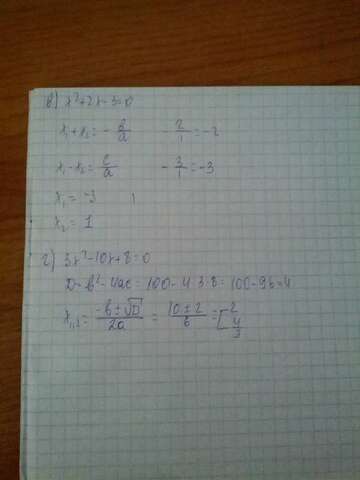 в) x²+2x-3=0
x₁+x₂ = -b/a   -2/1 = -2
x₁·x₂ = c/a   -3/1 = -3
x₁ = -3
x₂ = 1
г) 3x²-10x+8=0
D = b²-4ac = 100-4·3·8 = 100-96=4
x₁,₂ = (-b±√D)/2a = (10±2)/6 = [2 4/3